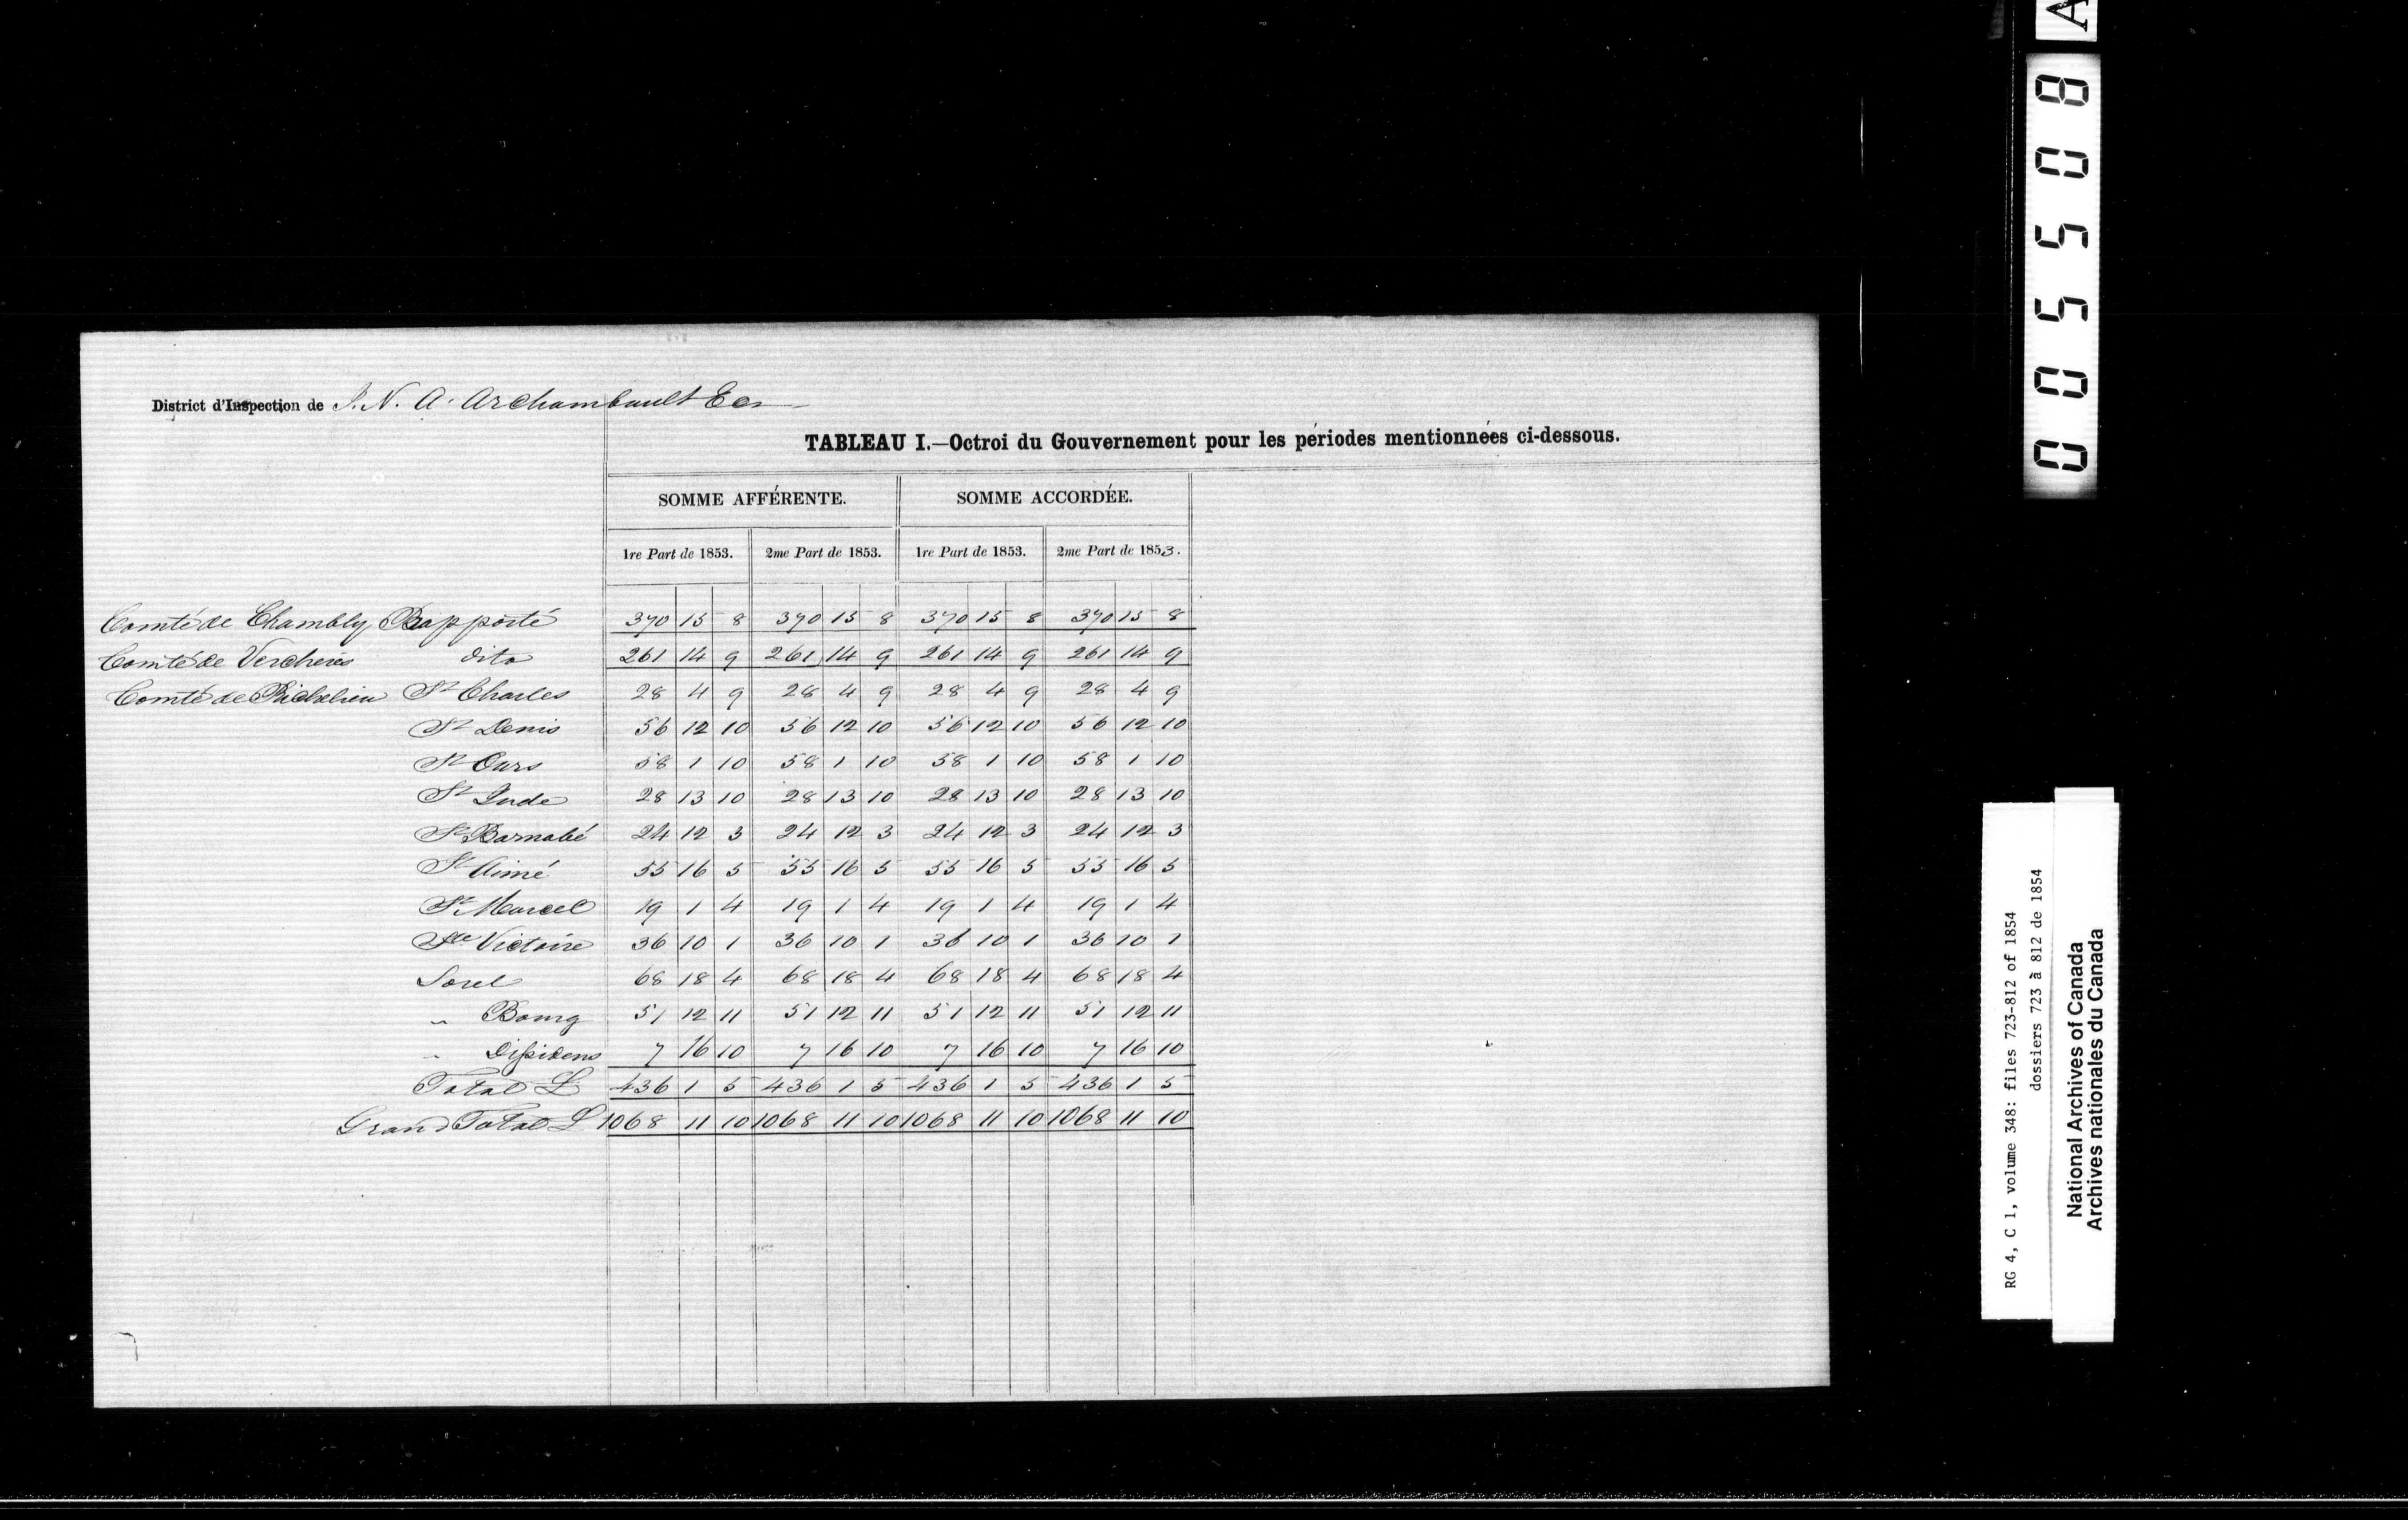 District d'Inspection de J. N. A. Archambault Ecr
TABLEAU I.—Octroi du Gouvernement pour les périodes mentionnées ci-dessous.
SOMME AFFÉRENTE. SOMME ACCORDÉE.
1re Part de 1853. 2me Part de 1853. 1re Part de 1853. 2me Part de 1853.
Comté de Chambly Rapporté 370 15 8 370 15 8 370 15 8 370 15 8
Comté de Verchères dito 261 14 9 261 14 9 261 14 9 261 14 9
Comté de Richelieu St Charles 28 4 9 28 4 9 28 4 9 28 4 9
St Denis 56 12 10 56 12 10 56 12 10 56 12 10
St Ours 58 1 10 58 1 10 58 1 10 58 1 10
St Jude 28 13 10 28 13 10 28 13 10 28 13 10
St Barnabé 24 12 3 24 12 3 24 12 3 24 12 3
St Aimé 55 16 5 55 16 5 55 16 5 55 16 5
St Marcel 19 1 4 19 1 4 19 1 4 19 1 4
Ste Victoire 36 10 1 36 10 1 36 10 1 36 10 1
Sorel 68 18 4 68 18 4 68 18 4 68 18 4
" Bourg 51 12 11 51 12 11 51 12 11 51 12 11
" Dissidens 7 16 10 7 16 10 7 16 10 7 16 10
Total £ 436 1 5 436 1 5 436 1 5 436 1 5
Grand Total £ 1068 11 10 1068 11 10 1068 11 10 1068 11 10
005508
A
RG 4, C 1, volume 348: files 723-812 of 1854
dossiers 723 à 812 de 1854
National Archives of Canada
Archives nationales du Canada